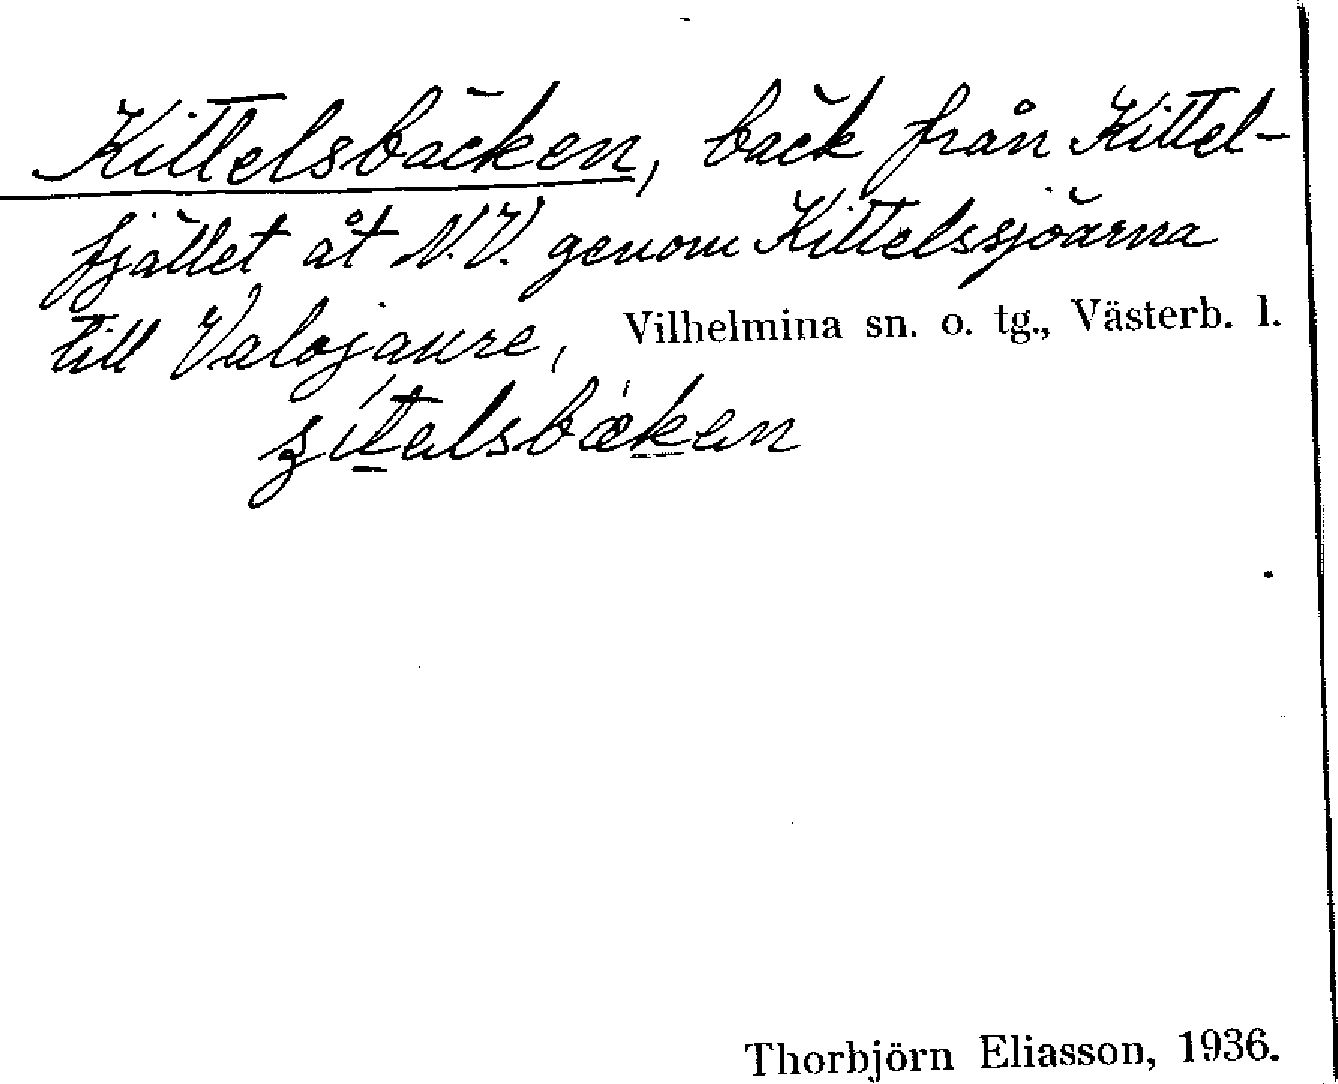 Kittelsbäcken, bäck från Kittel-
fjället åt N.V. genom Kittelssjöarna
till Valojaure, Vilhelmina sn. o. tg., Västerb. l.
Thorbjörn Eliasson, 1936.